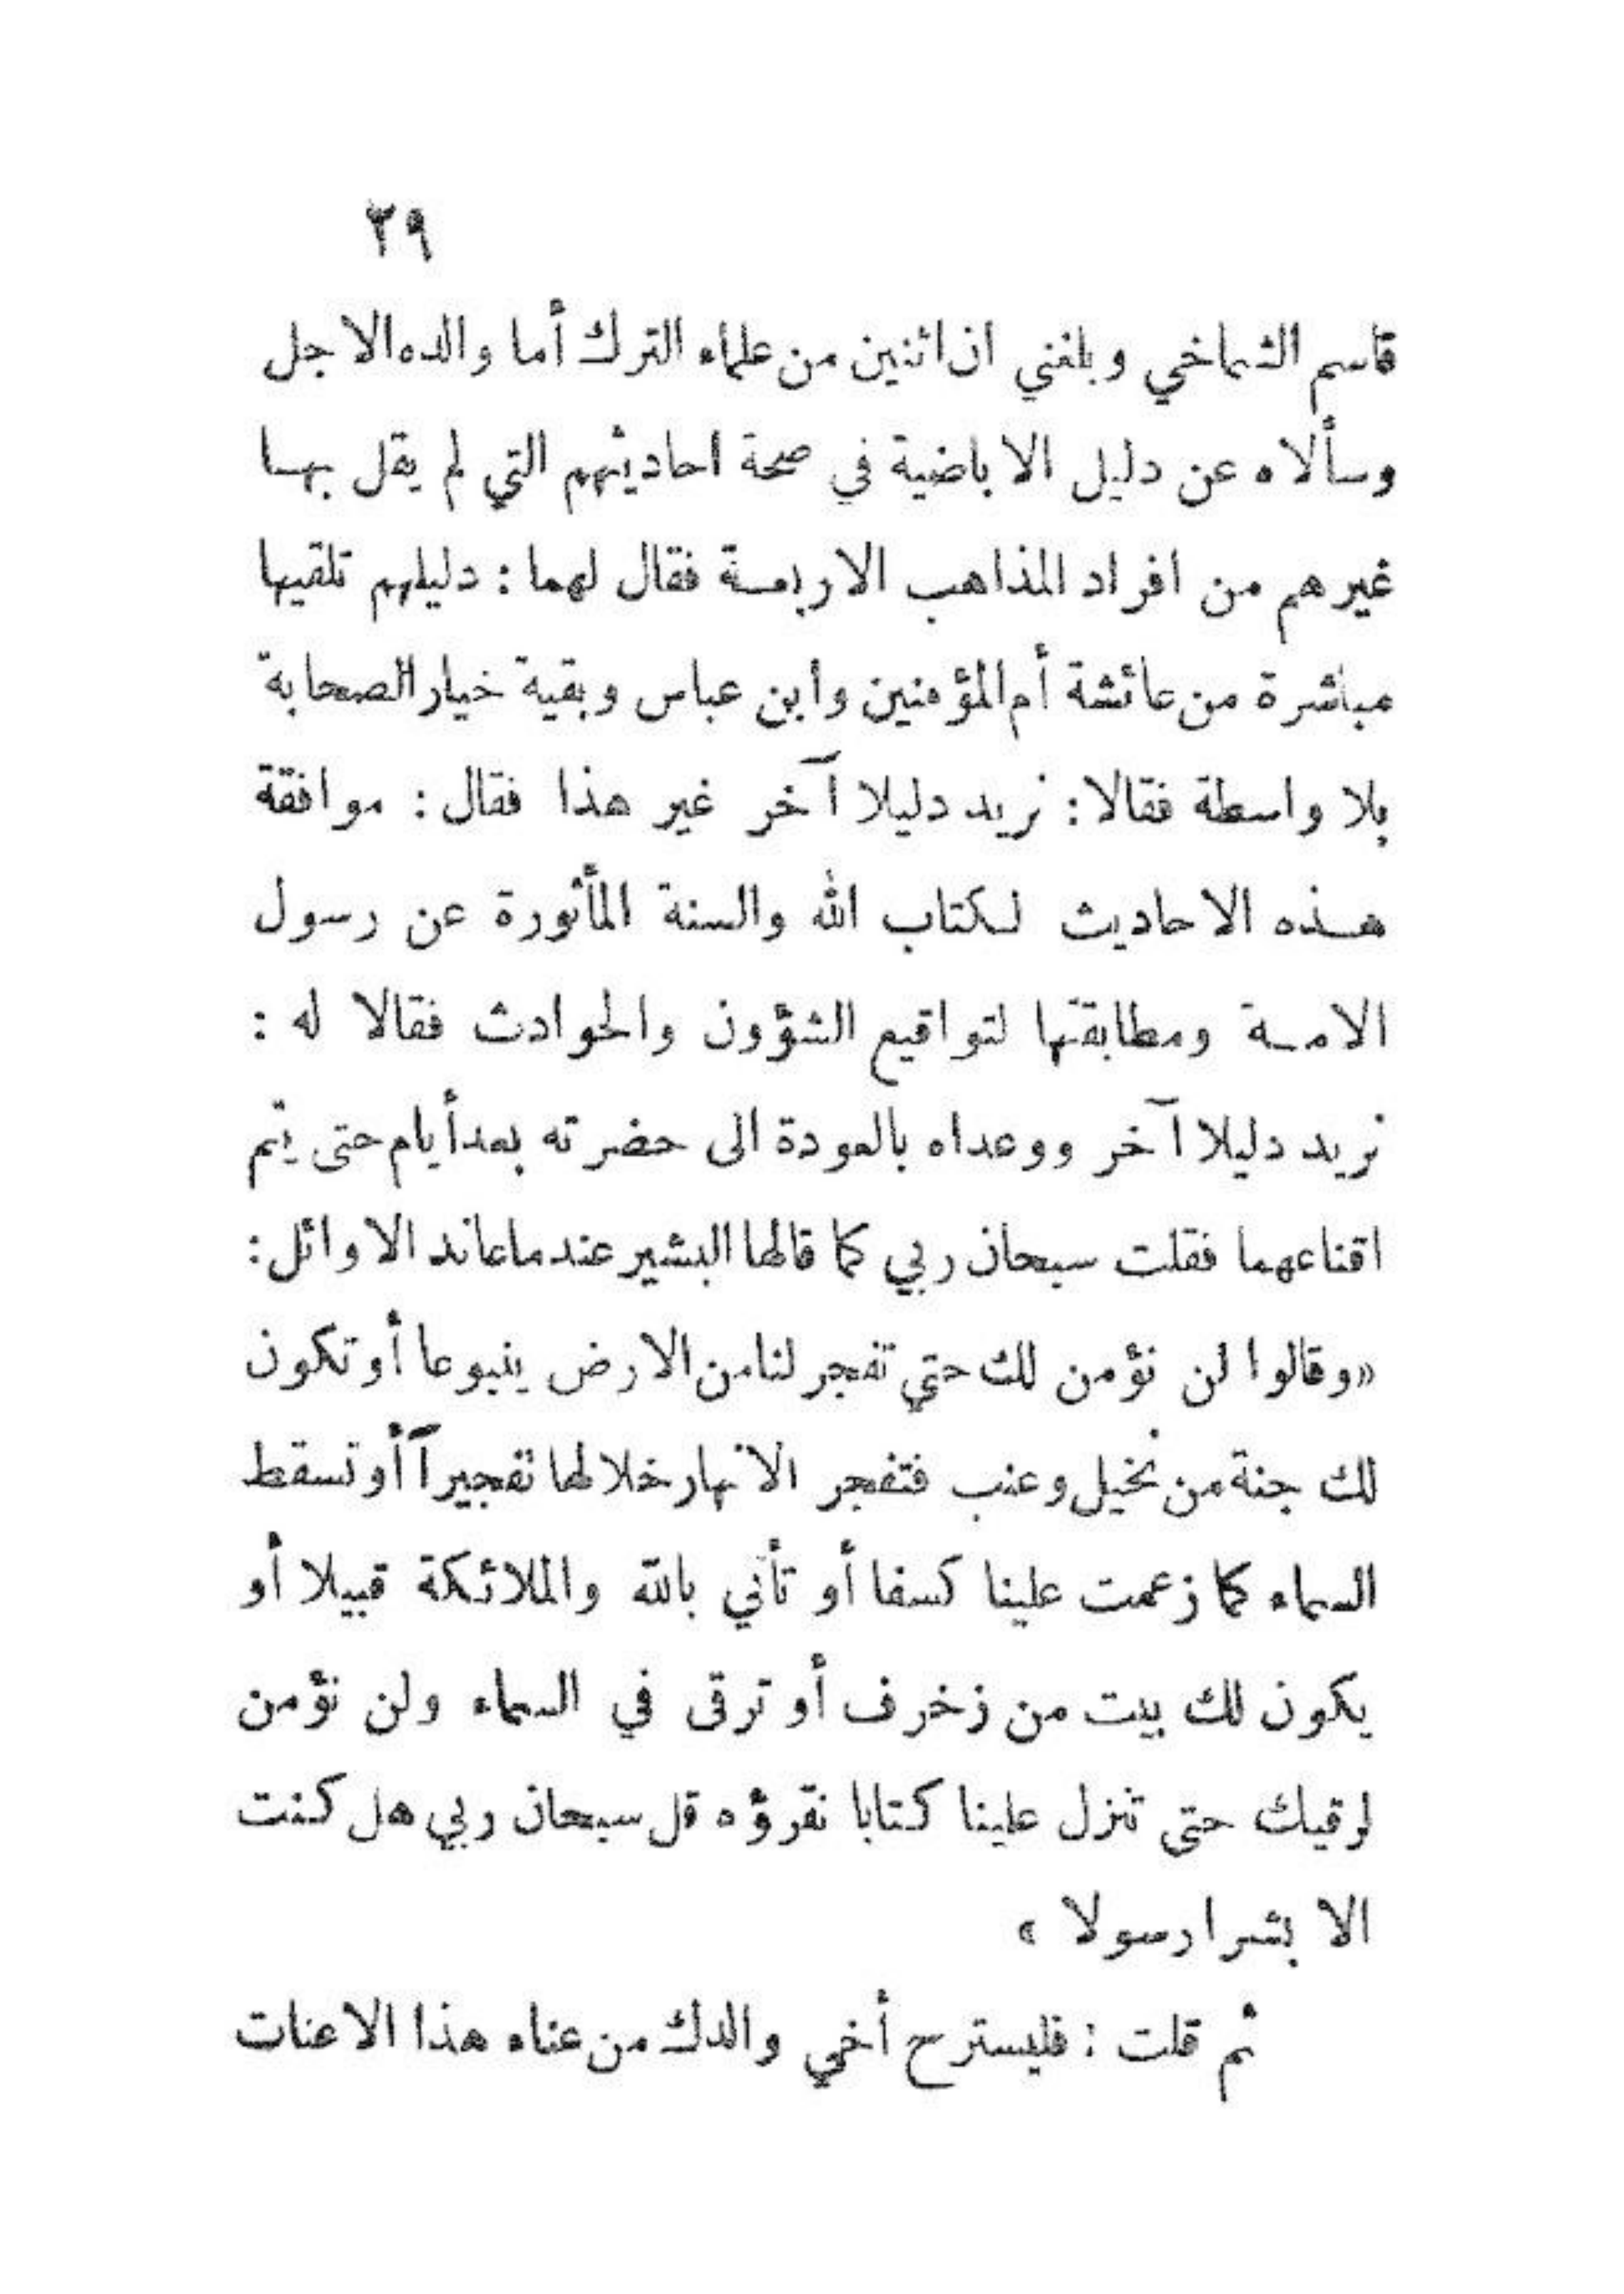 ٣٩
قاسم الشماخي وبلغني ان اثنين من علماء الترك أما والده الاجل
وسألاه عن دليل الاباضية في صحة احاديثهم التي لم يقل بهـا
غيرهم من افراد المذاهب الاربعـة فقال لهما : دليلهم تلقيها
مباشرة من عائشة أم المؤمنين وابن عباس وبقية خيار الصحابة
بلا واسطة فقالا : نريد دليلا آخر غير هذا فقال : موافقة
هـذه الاحاديث لكتاب الله والسنة المأثورة عن رسول
الامـة ومطابقتها لتواقيع الشؤون والحوادث فقالا له :
نريد دليلا آخر ووعداه بالعودة الى حضرته بعد أيام حتى يتم
اقناعهما فقلت سبحان ربي كما قالها البشير عند ما عاند الاوائل :
«وقالوا لن نؤمن لك حتى تفجر لنا من الارض ينبوعا أو تكون
لك جنة من نخيل وعنب فتفجر الانهار خلالها تفجيراً أو تسقط
السماء كما زعمت علينا كسفا أو تأتي بالله والملائكة قبيلا أو
يكون لك بيت من زخرف أو ترقى في السماء ولن نؤمن
لرقيك حتى تنزل علينا كتابا نقرؤه قل سبحان ربي هل كنت
الا بشرا رسولا »
ثم قلت : فليسترح أخي والدك من عناء هذا الاعنات